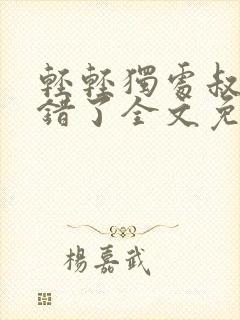 輕輕獨處叔
錯了全文免
楊嘉武